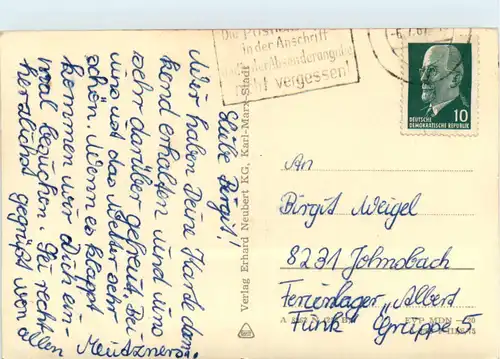 Die Postleitzahl
in der Anschrift
und der Absenderangabe
nicht vergessen!
10
DEUTSCHE
DEMOKRATISCHE REPUBLIK
Liebe Birgit!
Wir haben Deine Karte dan-
kend erhalten und uns
sehr darüber gefreut. Bei
uns ist das Wetter sehr
schön. Wenn es klappt
kommen wir Dich ein-
mal besuchen. Sei recht
herzlichst gegrüßt von
allen Meutzners.
Verlag Erhard Neubert KG, Karl-Marx-Stadt
An
Birgit Weigel
8231 Johnsbach
Ferienlager „Albert
Funk" Gruppe I
EVP MDN